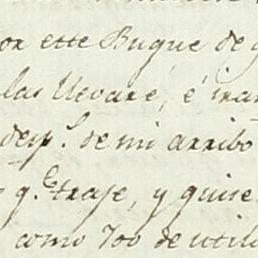 or este Buque de
las llevare, é iran
desp.s de mi arribo
q.e traje, y quise
como 700 de utili